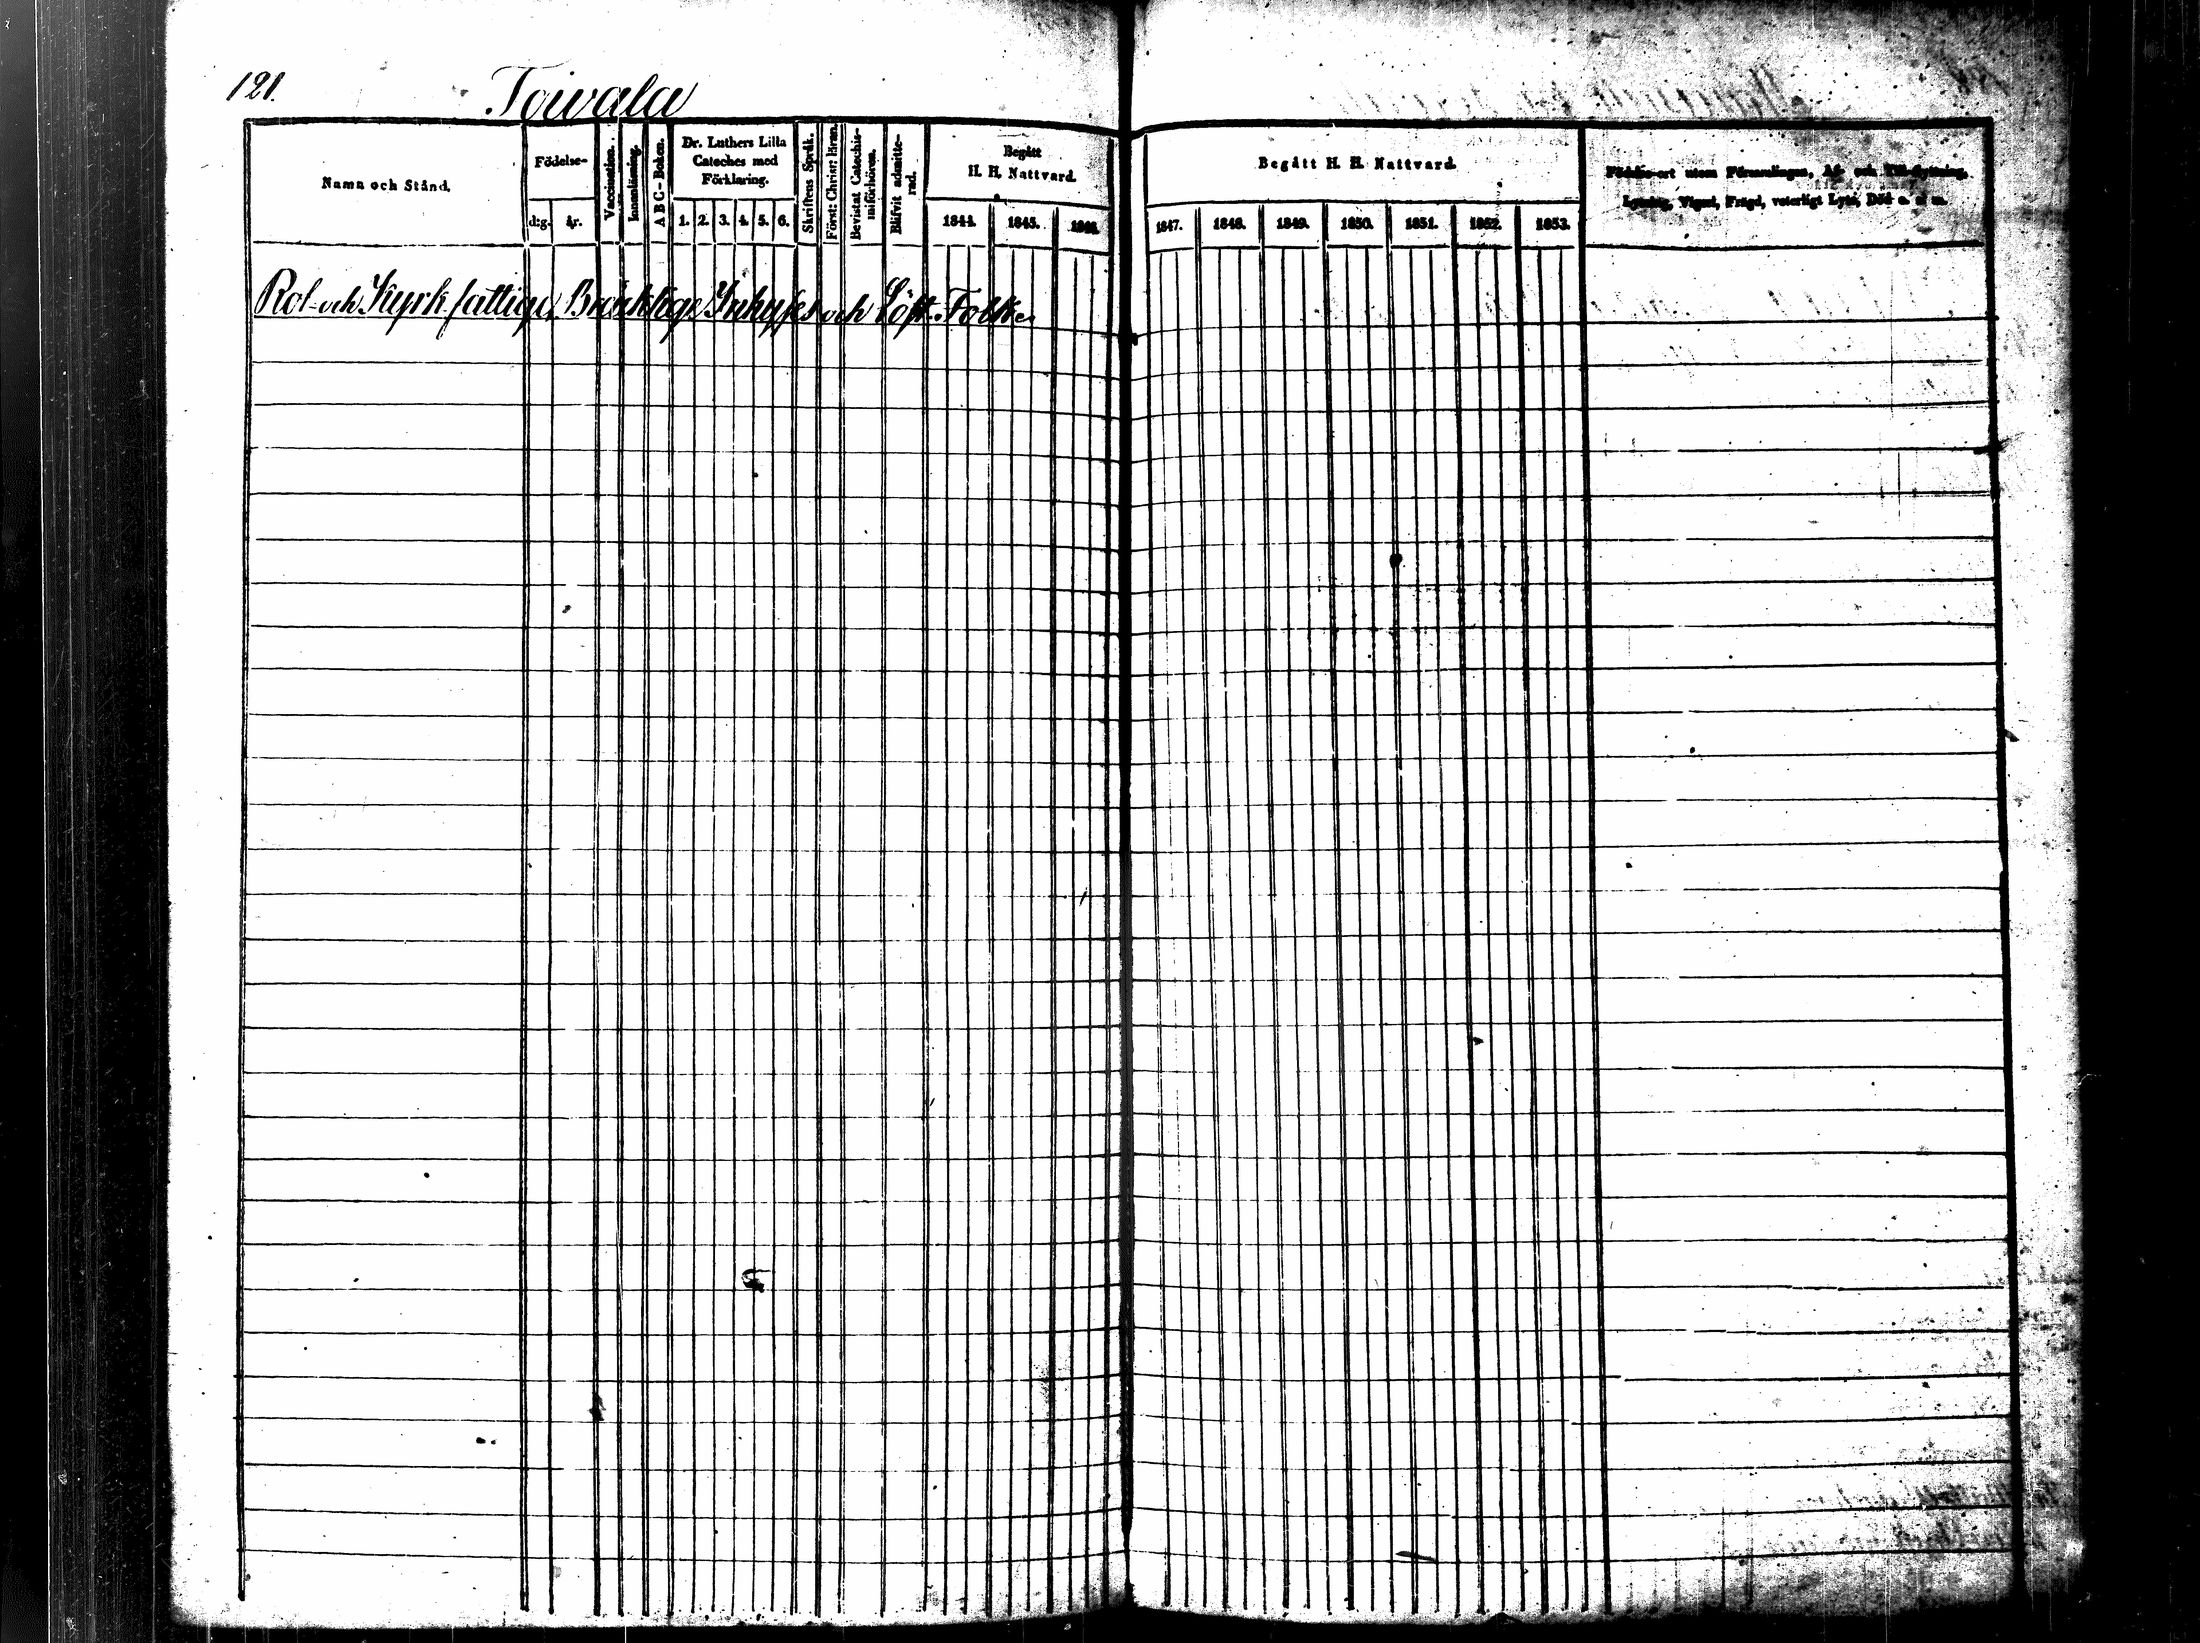 121. Toivala
Namn och Stånd.
Födelse-
d:g. år.
Vaccination.
Innanläsning.
A B C - Boken.
Dr. Luthers Lilla
Cateches med
Förklaring.
1. 2. 3. 4. 5. 6.
Skriftens Språk.
Först: Christ: läran.
Bevistat Catechis-
miförhören.
Blifvit admitte-
rad.
Begått
H. H. Nattvard.
1844. 1845. 1846.
Begått H. H. Nattvard.
1847. 1848. 1849. 1850. 1851. 1852. 1853.
Födelse-ort utom Församlingen, Af- och Till-flyttning,
Lysning, Vigsel, Frägd, veterligt Lyte, Död o. s. m.
Rot- och Kyrk fattige, Bräcklige Inhyses och Löst-Folk